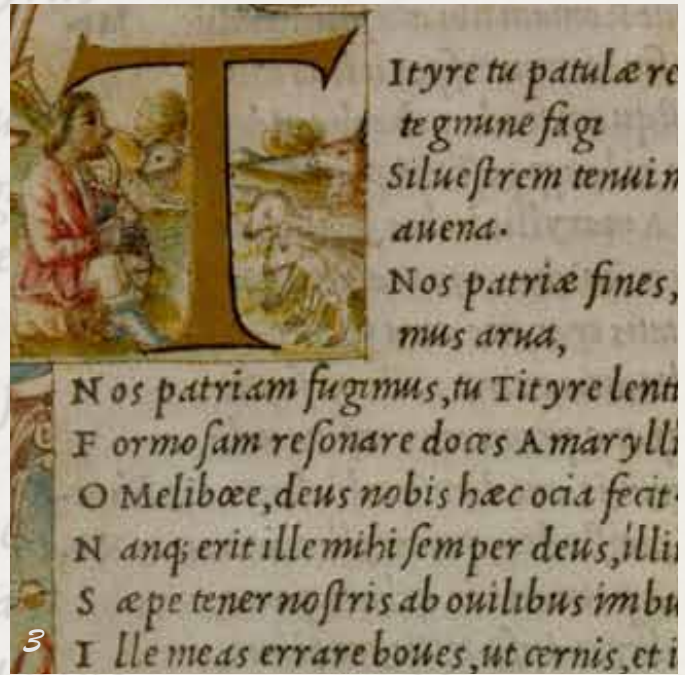 TItyre tu patulæ re
tegmine fagi
Silueſtrem tenui
auena.
Nos patriæ fines,
mus arua,
Nos patriam fugimus, tu Tityre lent
Formoſam reſonare doces Amarylli
O Meliboee, deus nobis hæc ocia fecit.
Nanq; erit ille mihi ſemper deus, illi
Sæpe tener noſtris ab ouilibus imbu
Ille meas errare boues, ut cernis, et i
3